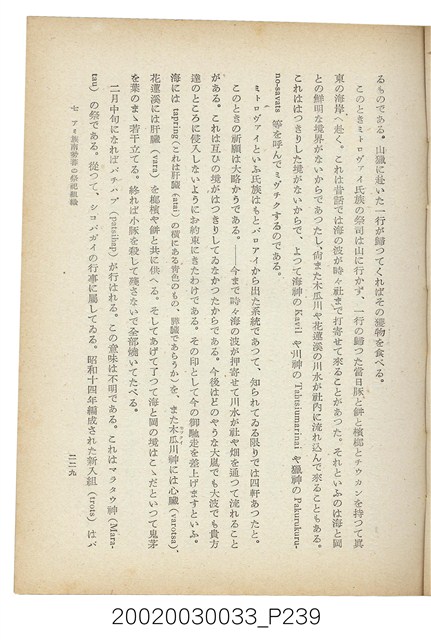 るものである。山獵に赴いた一行が歸つてくればその獲物を食べる。
このときミトロヴァイ氏族の祭司は山に行かず、一行の歸つた當日豚と餠と檳榔とチウカンを持つて眞
東の海岸へ赴く。これは昔話では海の波が時々社まで打寄せて來ることがあつた。それといふのは海と岡
との鮮明な境界がないからであつたし、尙また木瓜川や花蓮溪の川水が社內に流れ込んで來ることもある。
これははつきりした境がないからで、よつて海神の Kavil や川神の Talusiumarinai や獵神の Pakurukuru-
no-savats 等を呼んでミヴチクするのである。
ミトロヴァイといふ氏族はもとバロアイから出た系統であつて、知られてゐる限りでは四軒あつたと。
このときの祈願は大略かうである。――今まで時々海の波が押寄せて川水が社や畑を通つて流れること
がある。これは互ひの境がはつきりしてゐなかつたからである。今後はどのやうな大嵐でも大波でも貴方
達のところに侵入しないようにお約束にきたわけである。その印として今の御馳走を差上げますといふ。
海には taping (これは肝臟 (atai) の橫にある靑色のもの、膵臟であらうか) を、また木瓜川神には心臟 (varotsa)、
花蓮溪には肝臟 (vara) を檳榔や餠と共に供へる。そしてあげて了つて海と岡の境はこゝだといつて鬼茅
を葉のまゝ若干立てる。終れば小豚を殺して殘さないで全部燒いてたべる。
二月中旬になればパチハプ (patsihap) が行はれる。この意味は不明である。これはマラタウ神 (Mara-
tau) の祭である。從つて、シコバガイの行事に屬してゐる。昭和十四年編成された新入組 (trots) はバ
七 アミ族南勢蕃の祭祀組織
二二九
20020030033_P239